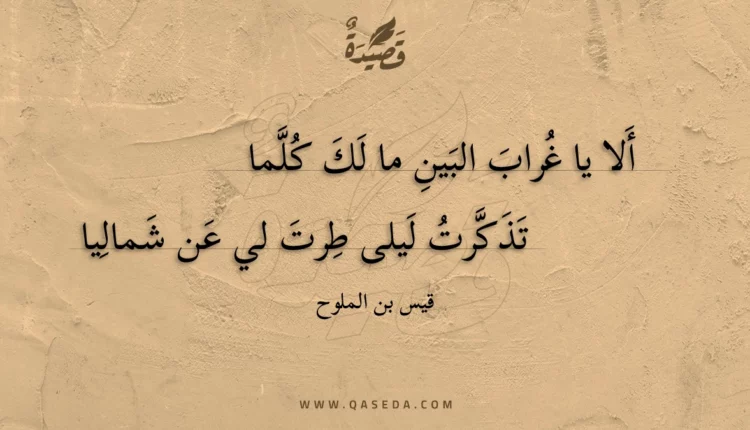 قَصِيدَةٌ
أَلا يا غُرابَ البَينِ ما لَكَ كُلَّما
تَذَكَّرتُ لَيلى طِرتَ لي عَن شَمالِيا
قيس بن الملوح
WWW.QASEDA.COM